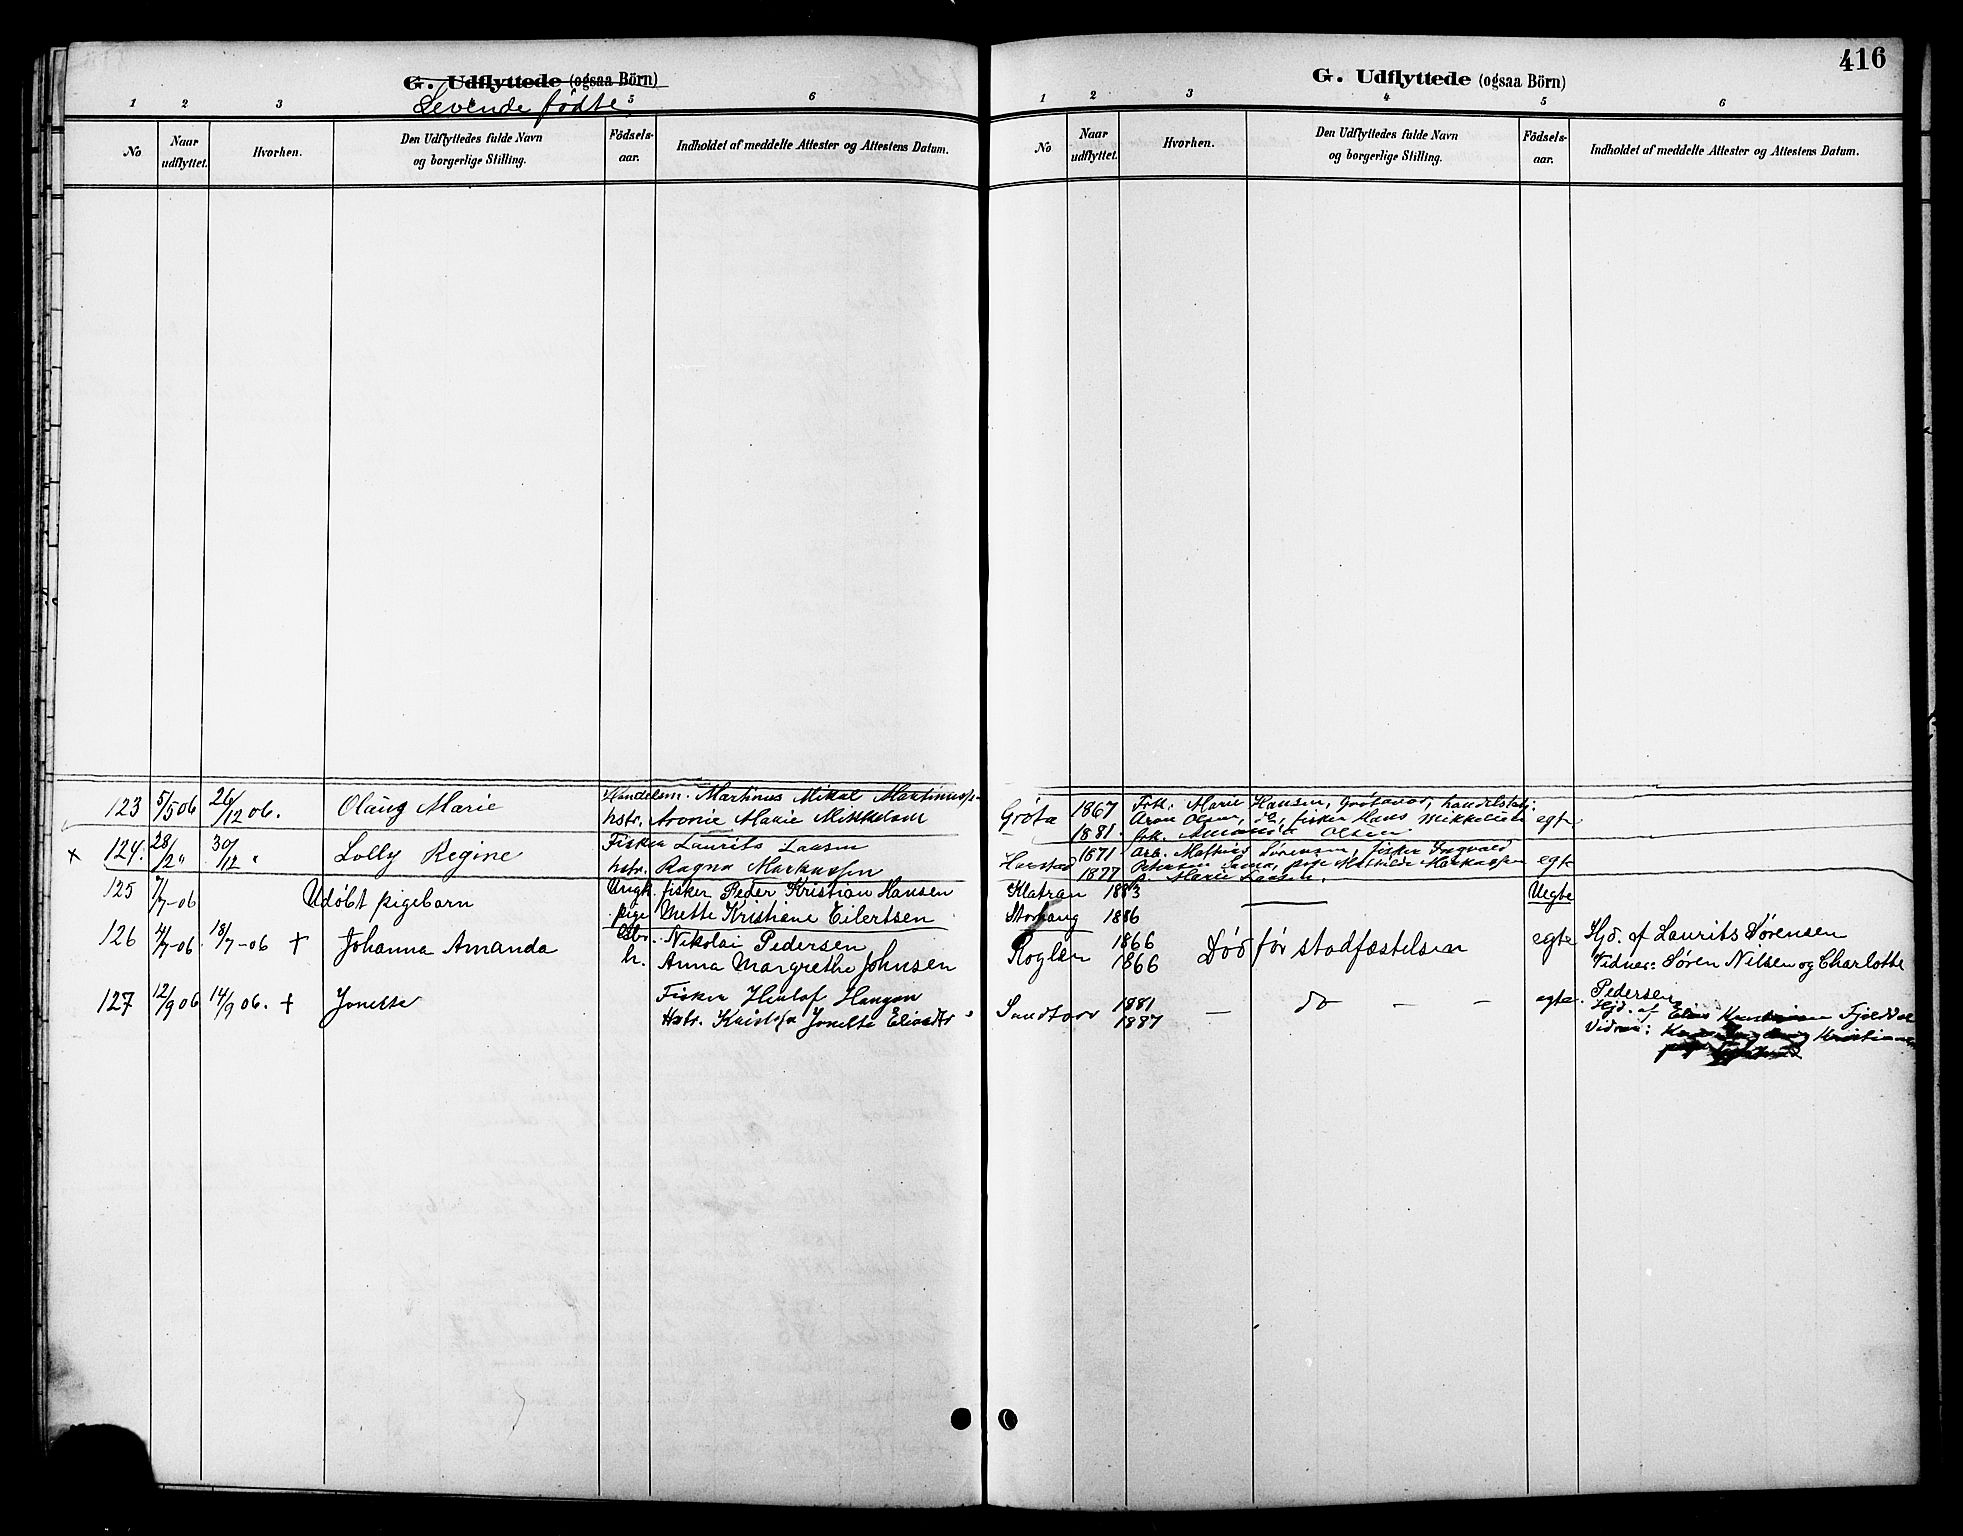 G. Udflyttede (ogsaa Börn)
Levende fødte
1 2 3 5 6
No
Naar udflyttet.
Hvorhen.
Den Udflyttedes fulde Navn og borgerlige Stilling.
Födsels-aar.
Indholdet af meddelte Attester og Attestens Datum.
123 5/5 06 26/12 06. Olaug Marie Handelsm. Martinus Mikal
hstr. Marie Mikkelsen
x 124. 28/2 " 30/12 " Lolly Regine Fisker Laurits
hstr. Ragna Markussen
125 7/7-06 Udøbt pigebarn Ungk. fisker Peder Kristian Hansen
pige Mette Kristiane Eilertsen
126 4/7-06 18/7-06 + Johanna Amanda Nikolai Pedersen
h. Anna Margrethe Johnsen
127 12/9 06 14/9 06. + Jonette Fisker
Hstr. Jonette
416
G. Udflyttede (ogsaa Börn)
1 2 3 4 5 6
No
Naar udflyttet.
Hvorhen.
Den Udflyttedes fulde Navn og borgerlige Stilling.
Födsels-aar.
Indholdet af meddelte Attester og Attestens Datum.
Grøta 1867 Marie Hansen, Grøtavær,
1881. Olsen, fisker Hans Mikkelsen egte
Olsen
Harstad 1871 Arb. Mathias Sørensen, fisker Ingvald
1877 pige Mathilde Markussen egte
Marie
Klatran 1883 — Uegte
Storhaug 1886
Roglen 1866 Død før stadfæstelsen egte Hjd. af Laurits Sørensen
1866 Vidner: Søren Nilsen og Charlotte
Pedersen
Sandtorv 1881 — do — — egte. Hjd. af
1887 Vidner: